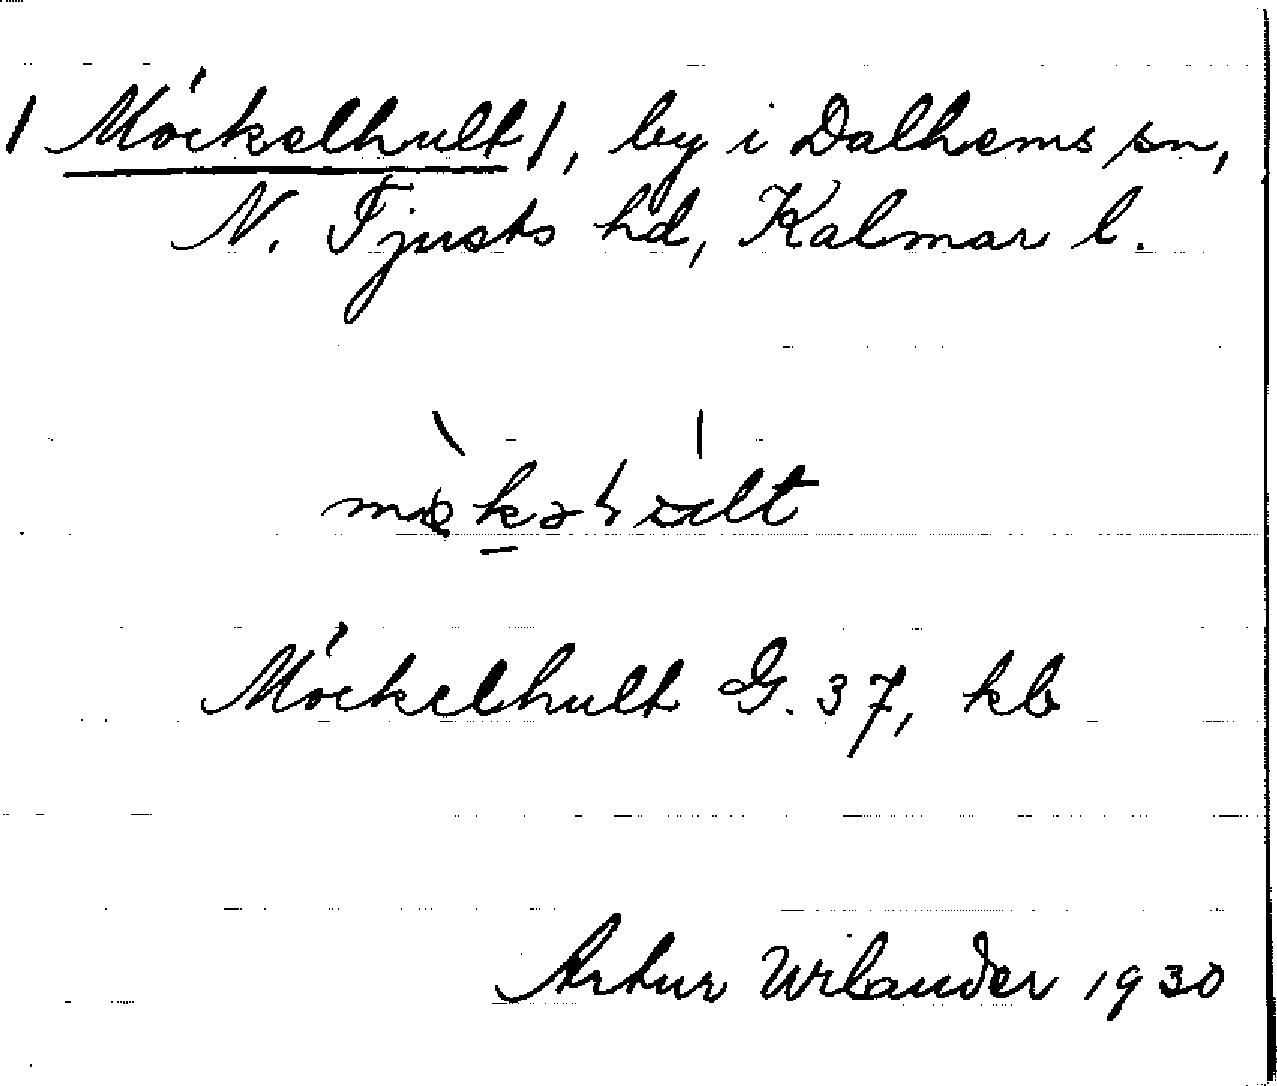 /Möckelhult/, by i Dalhems sn,
N. Tjusts hd, Kalmar l.
Möckelhult G. 37, kb
Artur Wilander 1930